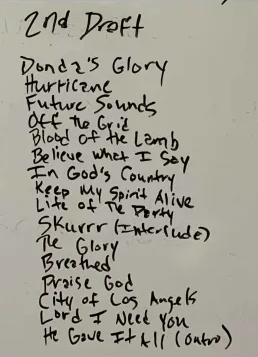 2nd Draft
Donda's Glory
Hurricane
Future Sounds
Off the Grid
Blood of the Lamb
Believe What I Say
In God's Country
Keep My Spirit Alive
Life of The Party
Skurrr (Interlude)
The Glory
Breathed
Praise God
City of Los Angels
Lord I Need You
He Gave It All (outro)